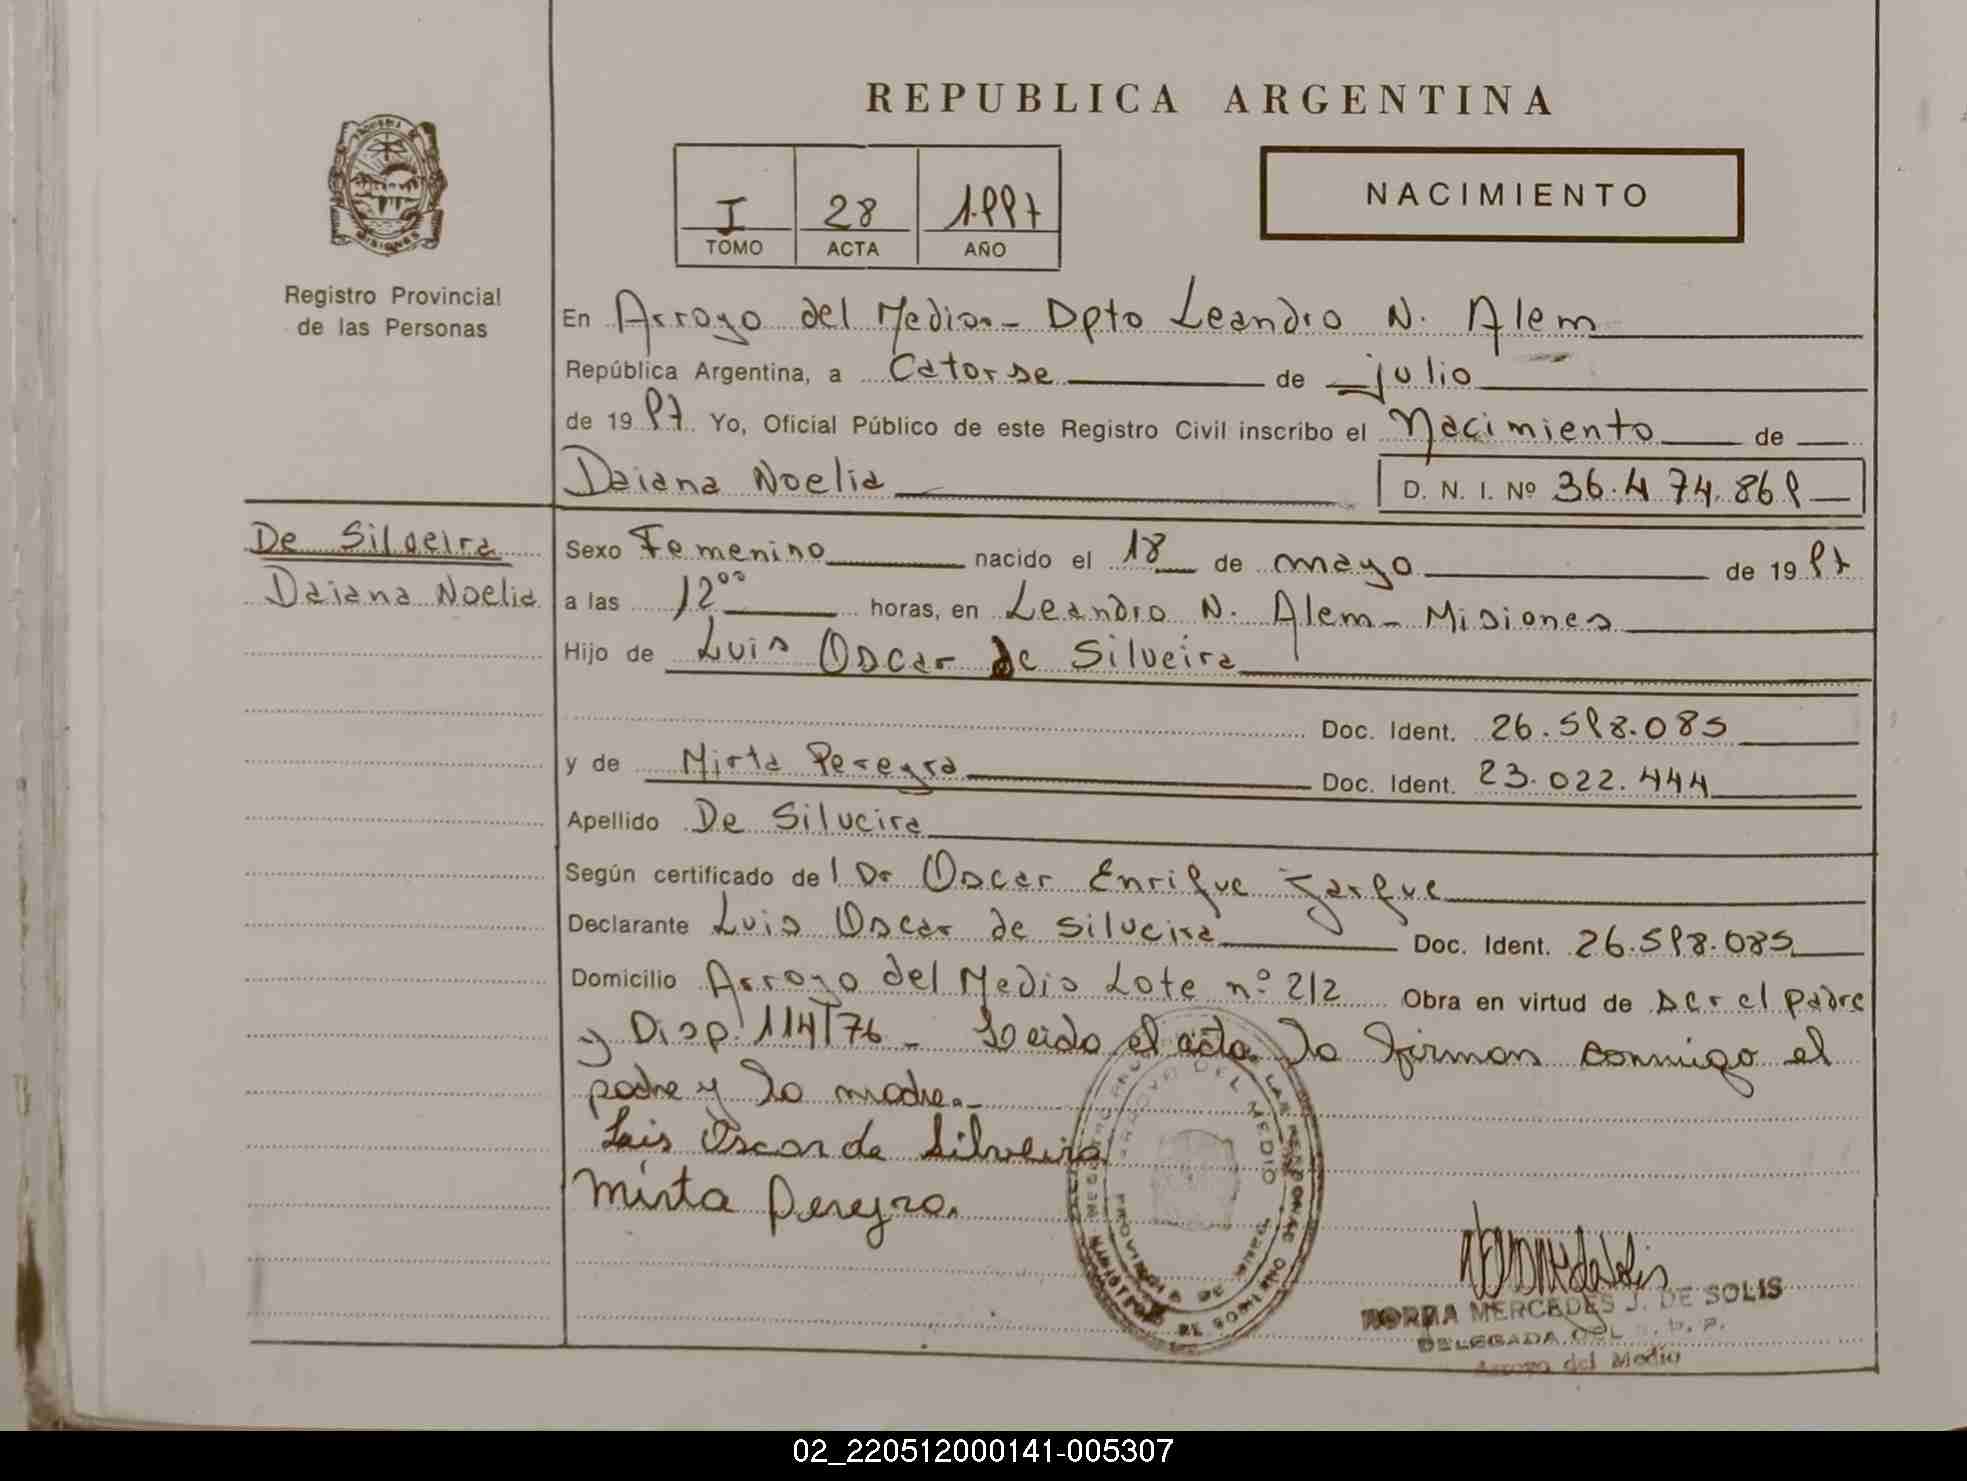 REPUBLICA ARGENTINA
PROVINCIA DE
MISIONES
Registro Provincial
de las Personas
I 28 1.997
TOMO ACTA AÑO
NACIMIENTO
En Arroyo del Medio.- Dpto Leandro N. Alem
República Argentina, a Catorse de julio
de 1997 Yo, Oficial Público de este Registro Civil inscribo el Nacimiento de
Daiana Noelia D. N. I. Nº 36.474.869
De Silveira
Daiana Noelia
Sexo Femenino nacido el 18 de mayo de 1997
a las 12°° horas, en Leandro N. Alem - Misiones
Hijo de Luis Oscar de Silveira
Doc. Ident. 26.598.085
y de Mirta Pereyra Doc. Ident. 23.022.444
Apellido De Silveira
Según certificado del Dr Oscar Enrique Jarque
Declarante Luis Oscar de Silveira Doc. Ident. 26.598.085
Domicilio Arroyo del Medio Lote n° 212 Obra en virtud de ser el padre
y Disp. 114/76 - Leida el acta la firman conmigo el
padre y la madre.-
Luis Oscar de Silveira
Mirta Pereyra.
ARROYO DEL MEDIO
PROVINCIA DE MISIONES
NORMA MERCEDES J. DE SOLIS
DELEGADA DEL R. P. P.
Arroyo del Medio
02_220512000141-005307